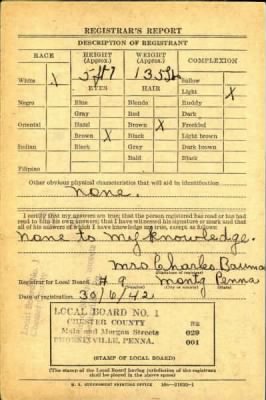 REGISTRAR'S REPORT
DESCRIPTION OF REGISTRANT
RACE HEIGHT (Approx.) WEIGHT (Approx.) COMPLEXION
5 ft 7 135 lb Sallow
White X Light X
EYES HAIR
Negro Blue Blonde Ruddy
Gray Red Dark
Oriental Hazel Brown X Freckled
Brown X Black Light brown
Indian Black Gray Dark brown
Bald Black
Filipino
Other obvious physical characteristics that will aid in identification
None.
I certify that my answers are true; that the person registered has read or has had read to him his own answers; that I have witnessed his signature or mark and that all of his answers of which I have knowledge are true, except as follows:
None to my knowledge.
Mrs Charles Bauma
Registrar for Local Board # 9 Montg Penna
(Number) (City or county) (State)
Date of registration 30/6/42
LOCAL BOARD NO. 1
CHESTER COUNTY
Main and Morgan Streets 029
PHOENIXVILLE, PENNA. 001
(STAMP OF LOCAL BOARD)
(The stamp of the Local Board having jurisdiction of the registrant shall be placed in the above space)
U. S. GOVERNMENT PRINTING OFFICE